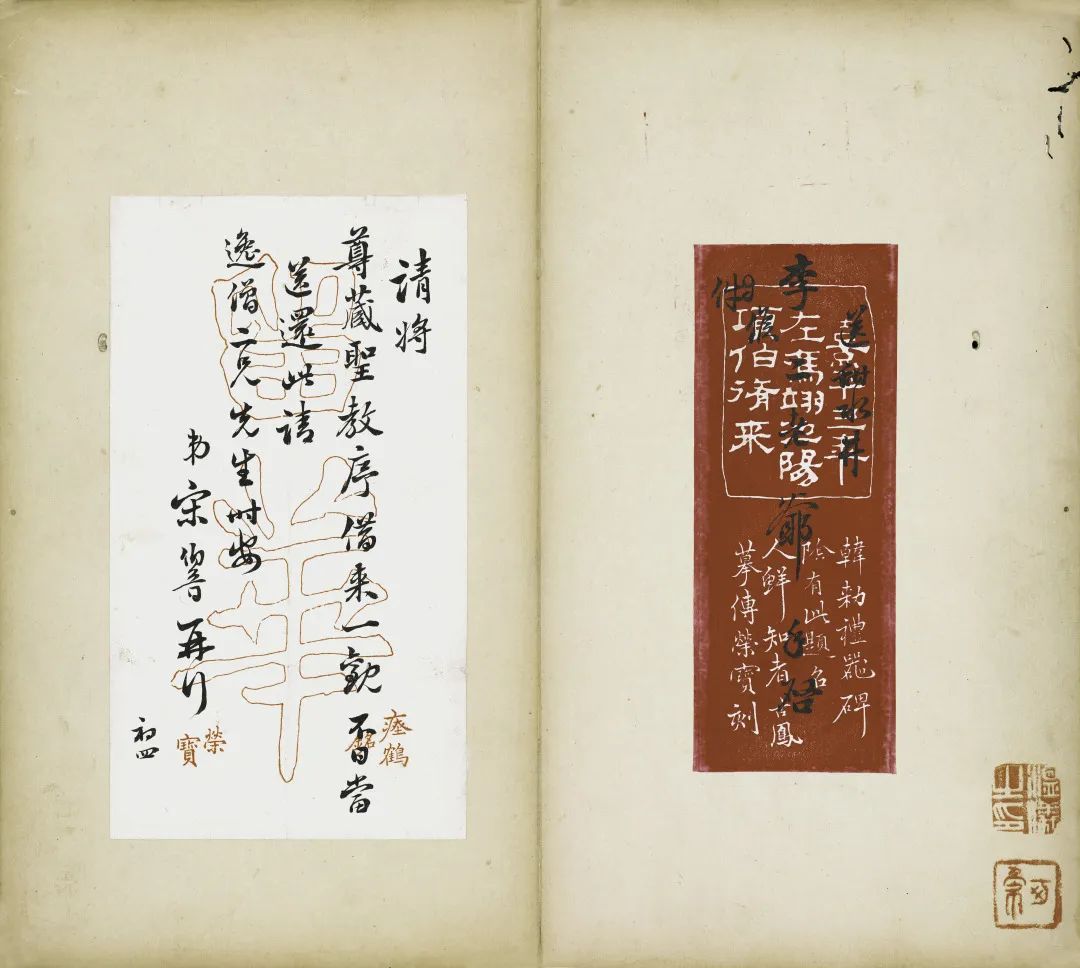 送甜水井
李二老爺
熹平三年
左馮翊池陽
項伯脩來
韓勑禮器碑
陰有此題名
人鮮知者古鳳
摹傳榮寶刻
請將
尊藏聖教序借來一觀不日當
送還此請
逸僧二兄先生時安
弟宋伯魯再
初四
瘞鶴
銘
榮
寶